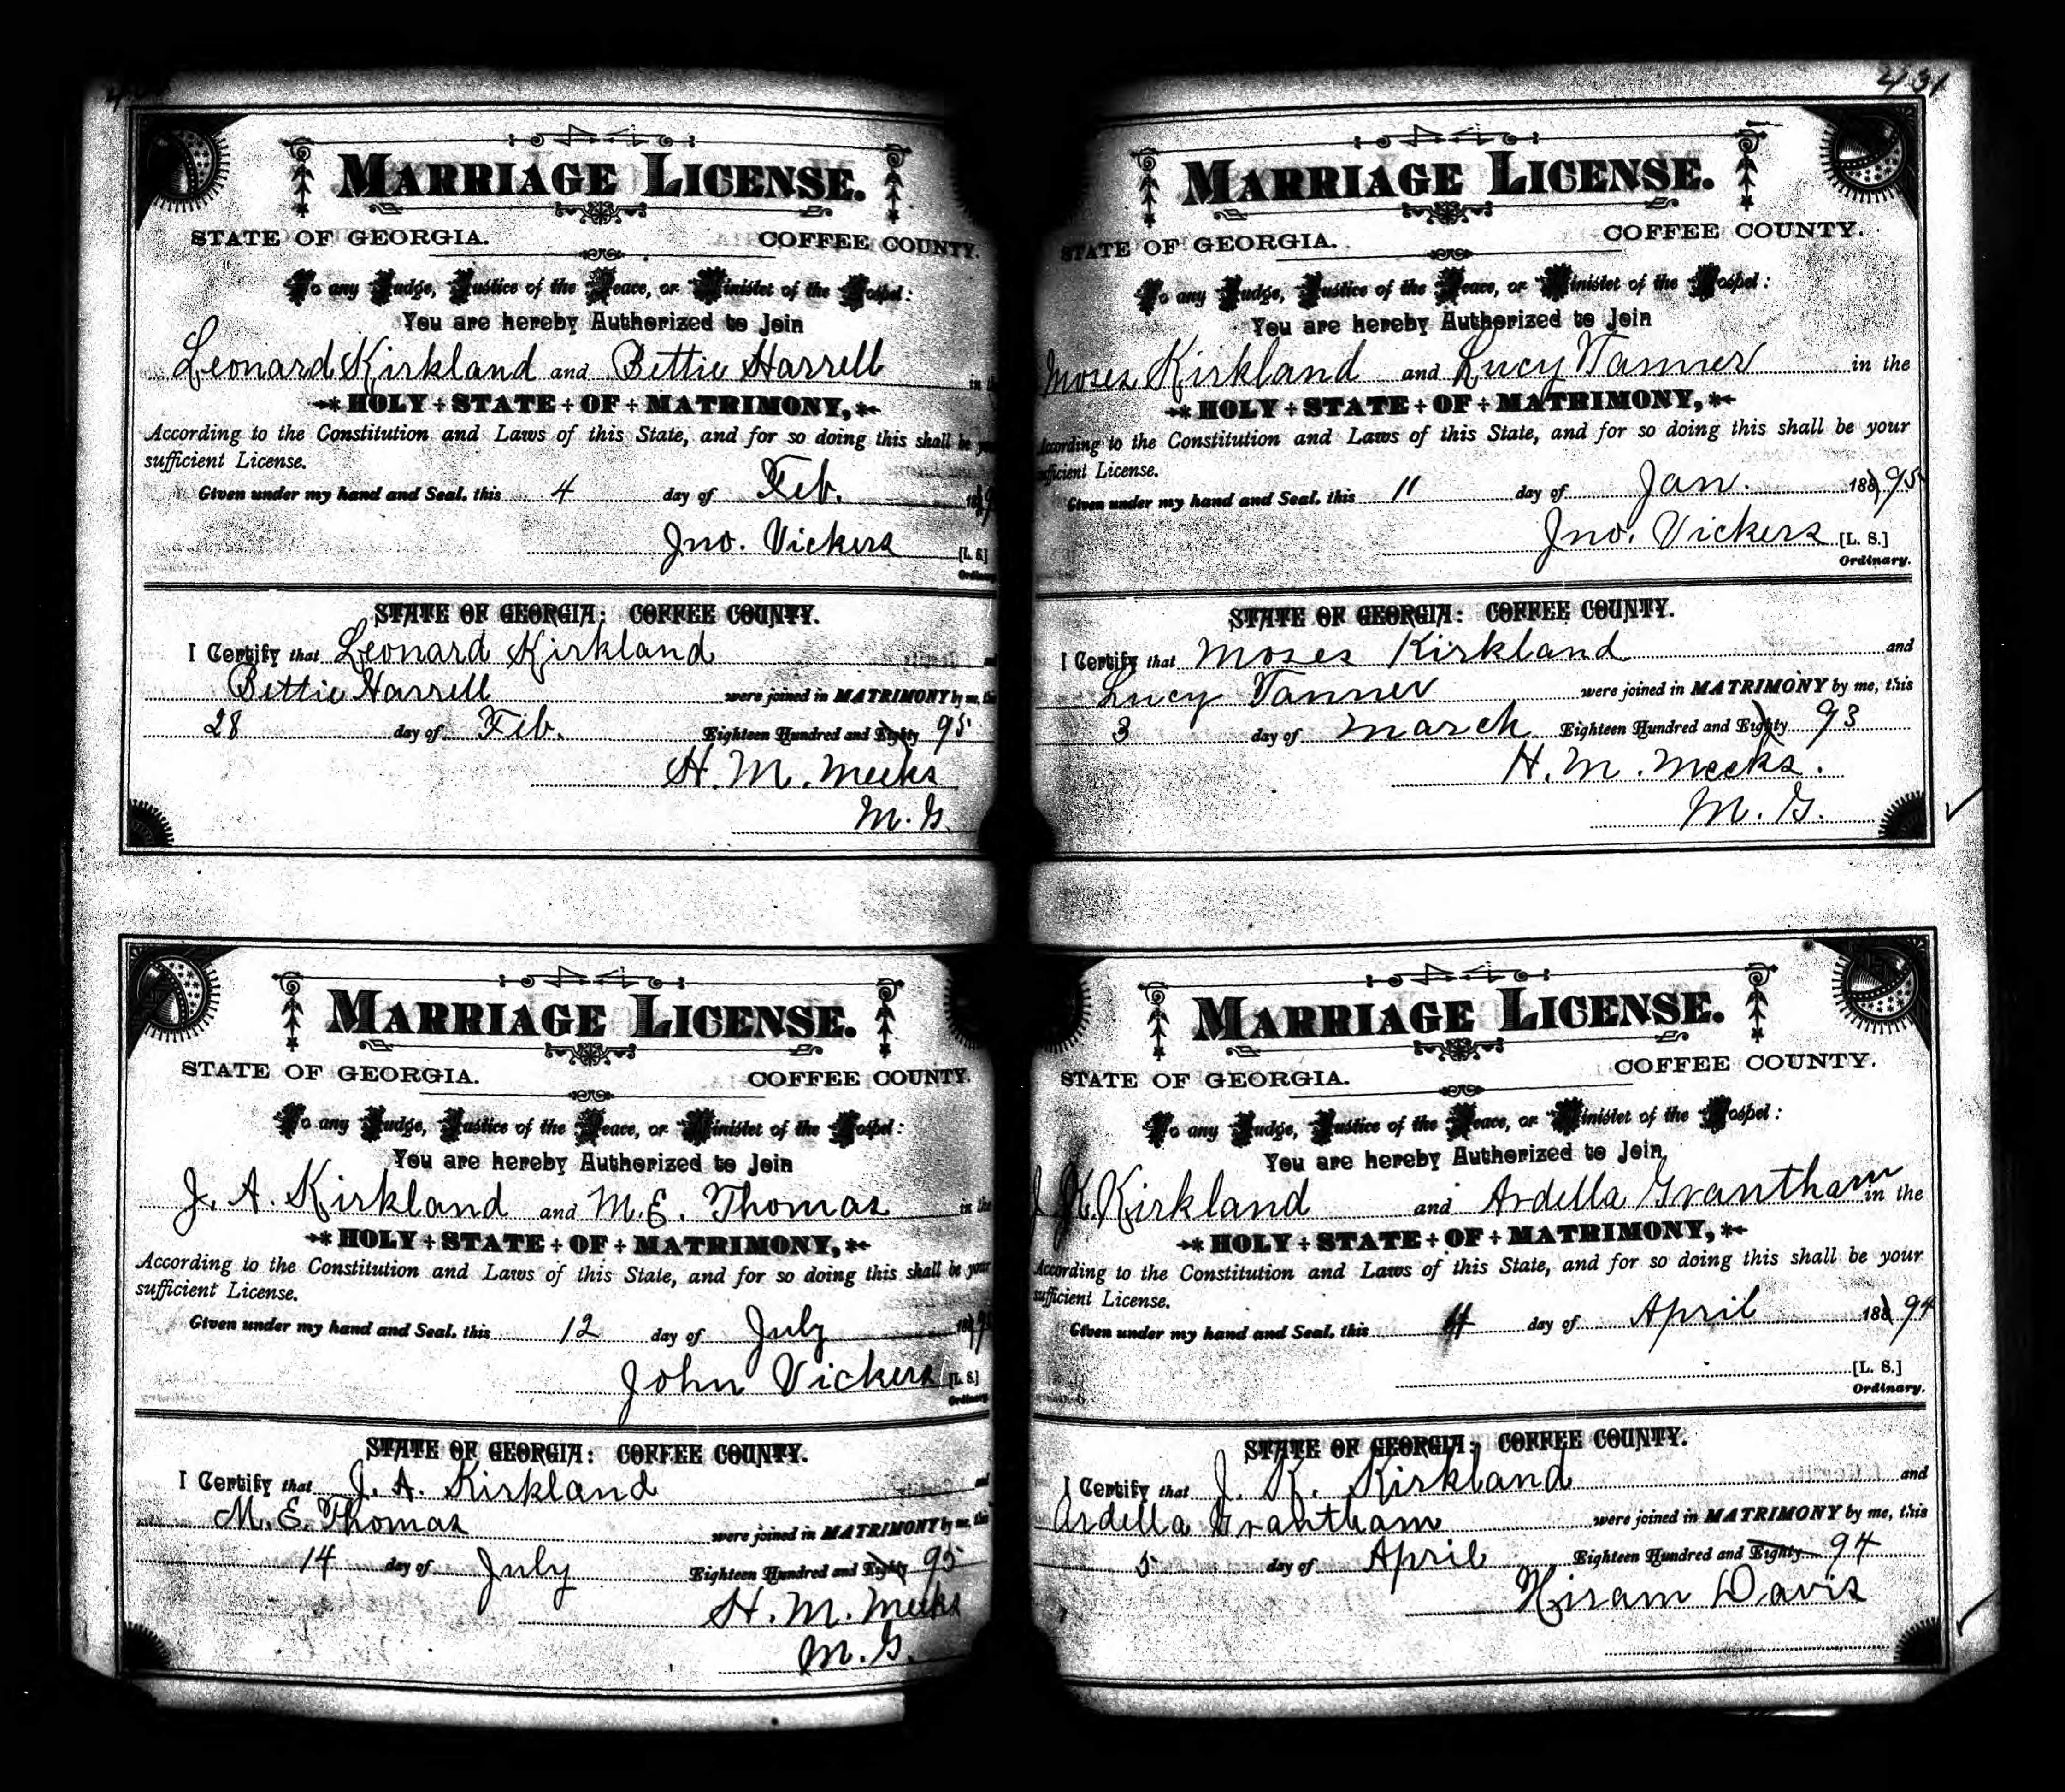 431
MARRIAGE LICENSE.
STATE OF GEORGIA. COFFEE COUNTY.
To any Judge, Justice of the Peace, or Minister of the Gospel:
You are hereby Authorized to Join
Leonard Kirkland and Bettie Harrell in the
HOLY + STATE + OF + MATRIMONY,
According to the Constitution and Laws of this State, and for so doing this shall be your
sufficient License.
Given under my hand and Seal, this 4 day of Feb.
Jno. Vickers [L. S.]
Ordinary.
STATE OF GEORGIA: COFFEE COUNTY.
I Certify that Leonard Kirkland and
Bettie Harrell were joined in MATRIMONY by me, this
28 day of Feb. Eighteen Hundred and Eighty 95
H. M. Meeks
M. G.
MARRIAGE LICENSE.
STATE OF GEORGIA. COFFEE COUNTY.
To any Judge, Justice of the Peace, or Minister of the Gospel:
You are hereby Authorized to Join
Moses Kirkland and Lucy Tanner in the
HOLY + STATE + OF + MATRIMONY,
According to the Constitution and Laws of this State, and for so doing this shall be your
sufficient License.
Given under my hand and Seal, this 11 day of Jan. 188 95
Jno. Vickers [L. S.]
Ordinary.
STATE OF GEORGIA: COFFEE COUNTY.
I Certify that Moses Kirkland and
Lucy Tanner were joined in MATRIMONY by me, this
3 day of March Eighteen Hundred and Eighty 93
H. M. Meeks.
M. G.
MARRIAGE LICENSE.
STATE OF GEORGIA. COFFEE COUNTY.
To any Judge, Justice of the Peace, or Minister of the Gospel:
You are hereby Authorized to Join
J. A. Kirkland and M. E. Thomas in the
HOLY + STATE + OF + MATRIMONY,
According to the Constitution and Laws of this State, and for so doing this shall be your
sufficient License.
Given under my hand and Seal, this 12 day of July
John Vickers [L. S.]
Ordinary
STATE OF GEORGIA: COFFEE COUNTY.
I Certify that J. A. Kirkland and
M. E. Thomas were joined in MATRIMONY by me, this
14 day of July Eighteen Hundred and Eighty 95
H. M. Meeks
M. G.
MARRIAGE LICENSE.
STATE OF GEORGIA. COFFEE COUNTY.
To any Judge, Justice of the Peace, or Minister of the Gospel:
You are hereby Authorized to Join
J K Kirkland and Ardella Grantham in the
HOLY + STATE + OF + MATRIMONY,
According to the Constitution and Laws of this State, and for so doing this shall be your
sufficient License.
Given under my hand and Seal, this 4 day of April 188 94
[L. S.]
Ordinary.
STATE OF GEORGIA: COFFEE COUNTY.
I Certify that J. K. Kirkland and
Ardella Grantham were joined in MATRIMONY by me, this
5 day of April Eighteen Hundred and Eighty 94
Hiram Davis